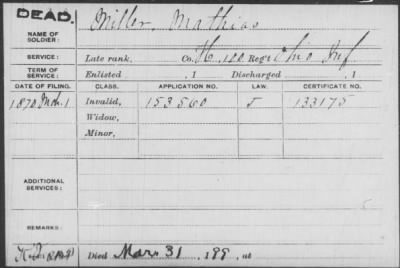 DEAD.
Miller, Mathias
NAME OF SOLDIER:
SERVICE: Late rank, Co. H, 180 Reg't Ohio Inf
TERM OF SERVICE: Enlisted , 1 Discharged , 1
DATE OF FILING. CLASS. APPLICATION NO. LAW. CERTIFICATE NO.
1870 Mch. 1 Invalid, 153560 133175
Widow,
Minor,
ADDITIONAL SERVICES:
REMARKS:
Died Mar. 31, 189 , at